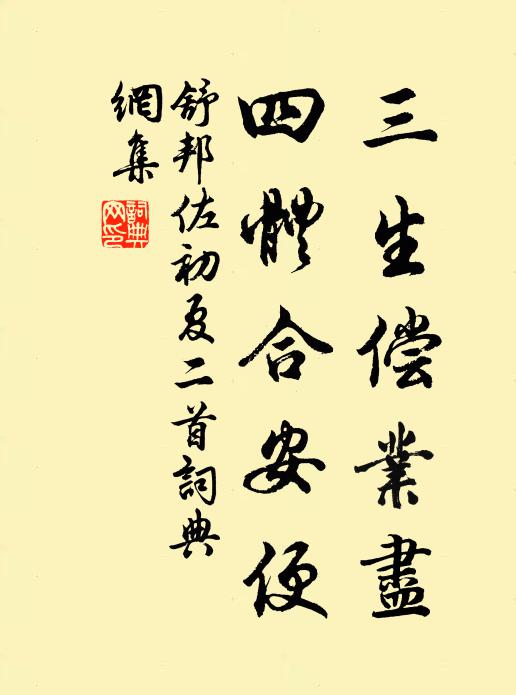 三生偿業盡
四體合安便
舒邦佐初夏二首詞典
網集
詞典
网印